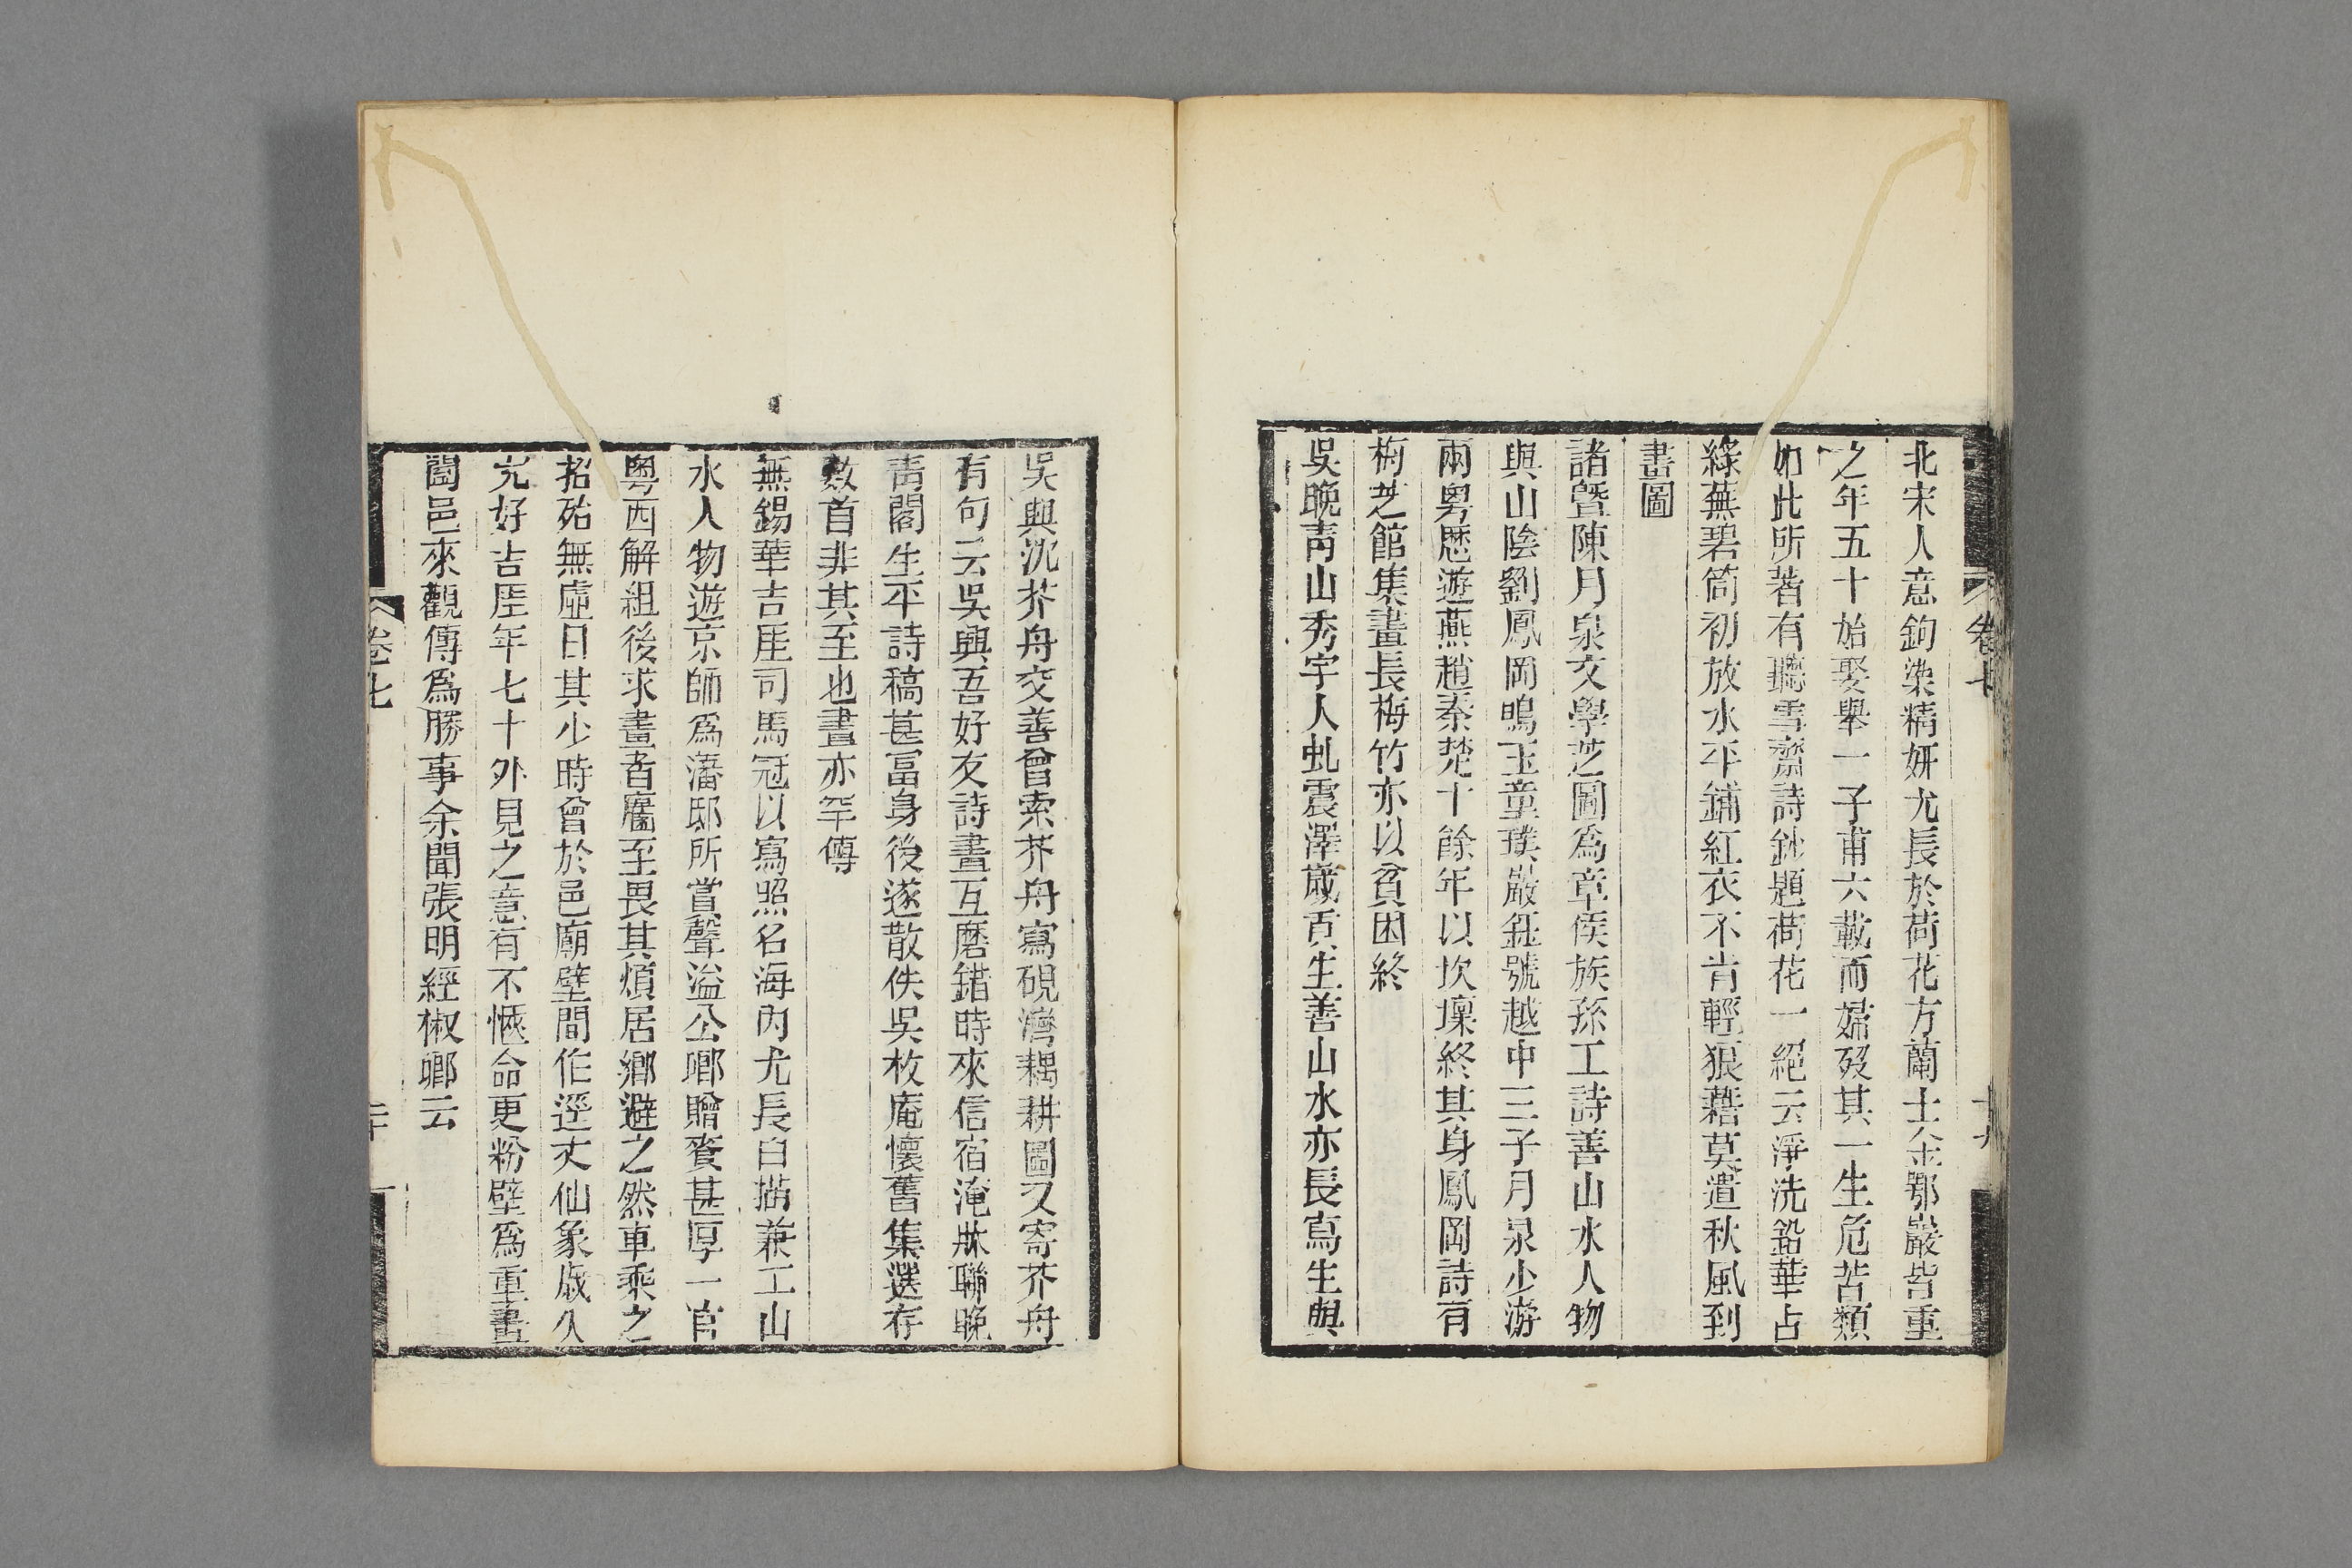 北宋人意鉤染精妍尤長於荷花方蘭士余鄂巖皆重
之年五十始娶舉一子甫六載而婦歿其一生危苦類
如此所著有聽雪齋詩鈔題荷花一絕云淨洗鉛華占
綠蕪碧筒初放水平鋪紅衣不肯輕狼藉莫遣秋風到
畫圖
諸曁陳月泉文學芝圖爲章侯族孫工詩善山水人物
與山陰劉鳳岡鳴玉童璞巖鈺號越中三子月泉少游
兩粤歷遊燕趙秦楚十餘年以坎壈終其身鳳岡詩有
梅芝館集畫長梅竹亦以貧困終
吳晩靑山秀字人虬震澤歲貢生善山水亦長寫生與
卷七
十九
吳興沈芥舟交善曾索芥舟寫硯灣耦耕圖又寄芥舟
有句云吳興吾好友詩畫互磨錯時來信宿淹牀聯晩
靑閣生平詩稿甚富身後遂散佚吳枚庵懷舊集選存
數首非其至也畫亦罕傳
無錫華吉厓司馬冠以寫照名海內尤長白描兼工山
水人物遊京師爲藩邸所賞聲溢公卿贈賚甚厚一官
粤西解組後求畫者麕至畏其煩居鄉避之然車乘之
招殆無虛日其少時曾於邑廟壁間作逕丈仙象歲久
完好吉厓年七十外見之意有不愜命更粉壁爲重畫
闔邑來觀傳爲勝事余聞張明經椒卿云
卷七
二十